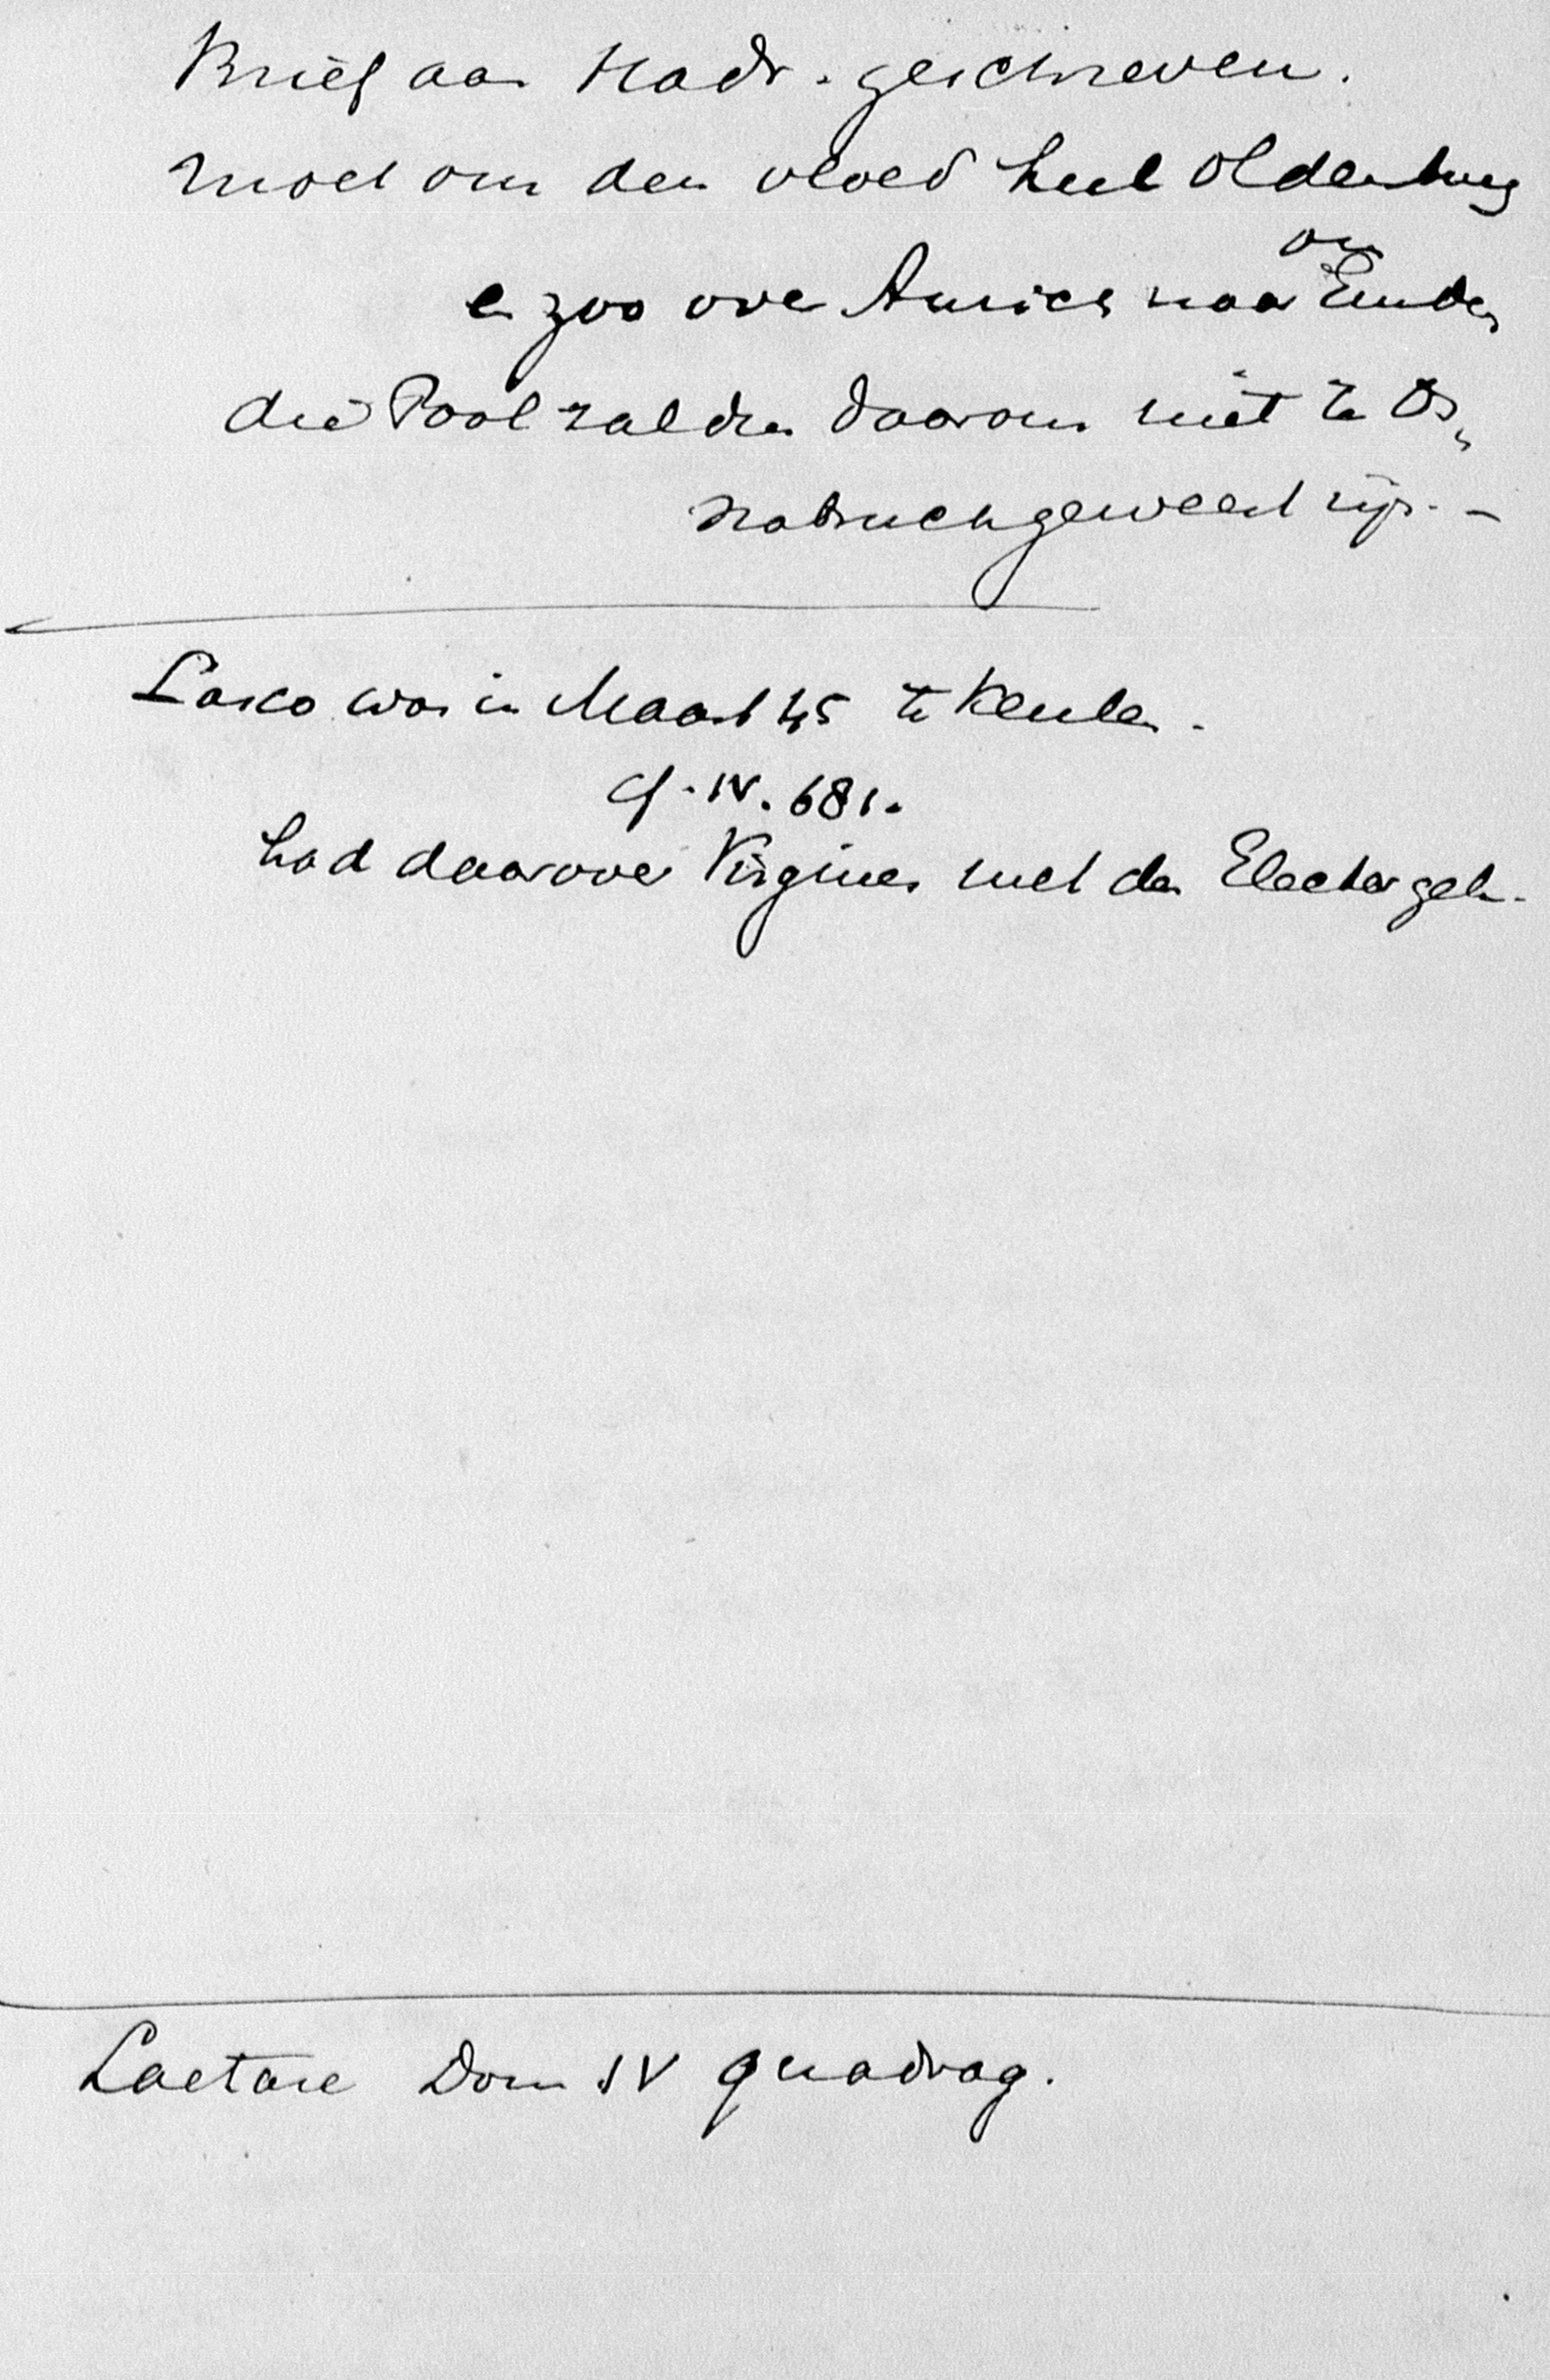 Brief aan Hadr. geschreven.
moet om den vloed heel Oldenburg
om
en zoo over Aurich naar Emden
die Pool zal dus daarom niet te Os„
nabruch geweest zijn. –
Lasco was in Maart 45 te Keulen.
cf. IV. 681.
had daarover Virginer met den Elector geh.
Laetare Dom IV quadrag.